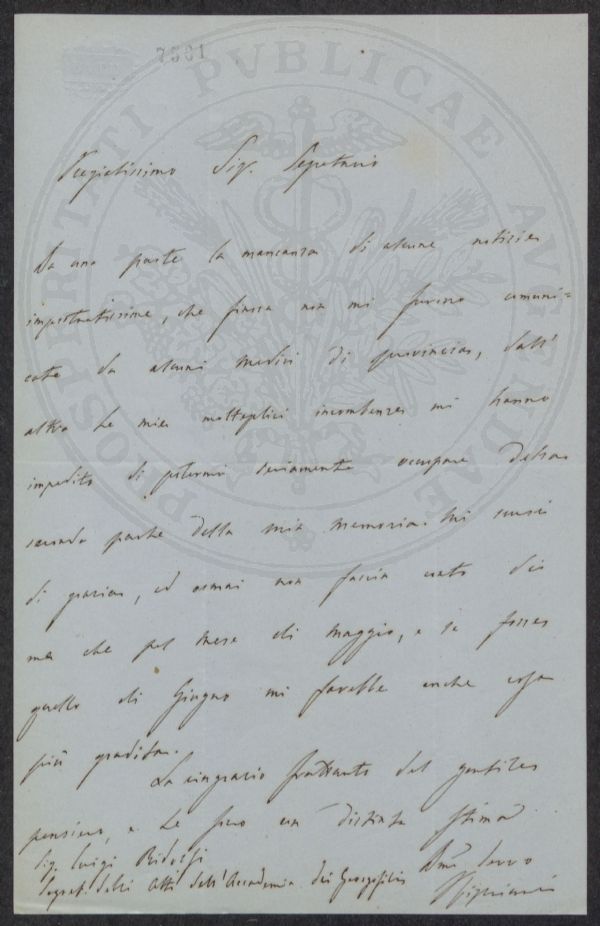 7501
PROSPERITATI PVBLICAE AVGENDAE
Pregiatissimo Sig. Segretario
Da una parte la mancanza di alcune notizie
importantissime, che finora non mi furono comuni=
cate da alcuni medici di provincia, dall'
altra le mie molteplici incombenze mi hanno
impedito di potermi seriamente occupare della
seconda parte della mia memoria. Mi scusi
di grazia, ed ormai non faccia conto di
me che pel mese di Maggio, e se fosse
quello di Giugno mi farebbe anche cosa
più gradita.
La ringrazio frattanto del gentile
pensiero, e La con distinta stima
Sig. Luigi Ridolfi
Segret. degli Atti dell'Accademia dei Georgofili
Dmo Servo